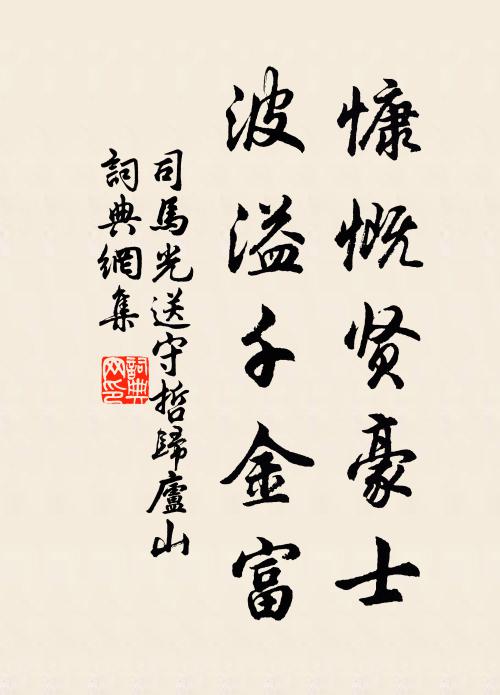 慷慨贤豪士
波溢千金富
司馬光送守哲歸廬山
詞典網集
詞典網印